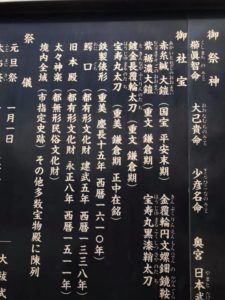 御祭神
櫛真智命 大己貴命 少彦名命 奥宮 日本武
御社宝
赤糸威大鎧（国宝 平安末期） 金覆輪円文螺鈿鏡鞍
紫裾濃大鎧（重文 鎌倉期） 宝寿丸黒漆鞘太刀
鍍金長覆輪太刀（重文 鎌倉期）
宝寿丸太刀（重美 鎌倉期 正中在銘）
鉄製俵形（重美 慶長十五年 西暦一六一〇年）
鰐口（都有形文化財 建武五年 西暦一三三八年）
旧本殿（都有形文化財 永正八年 西暦一五一一年）
太々神楽（都無形民俗文化財）
境内全域（市指定史跡）その他多数宝物殿に陳列
祭儀
元旦祭 一月一日